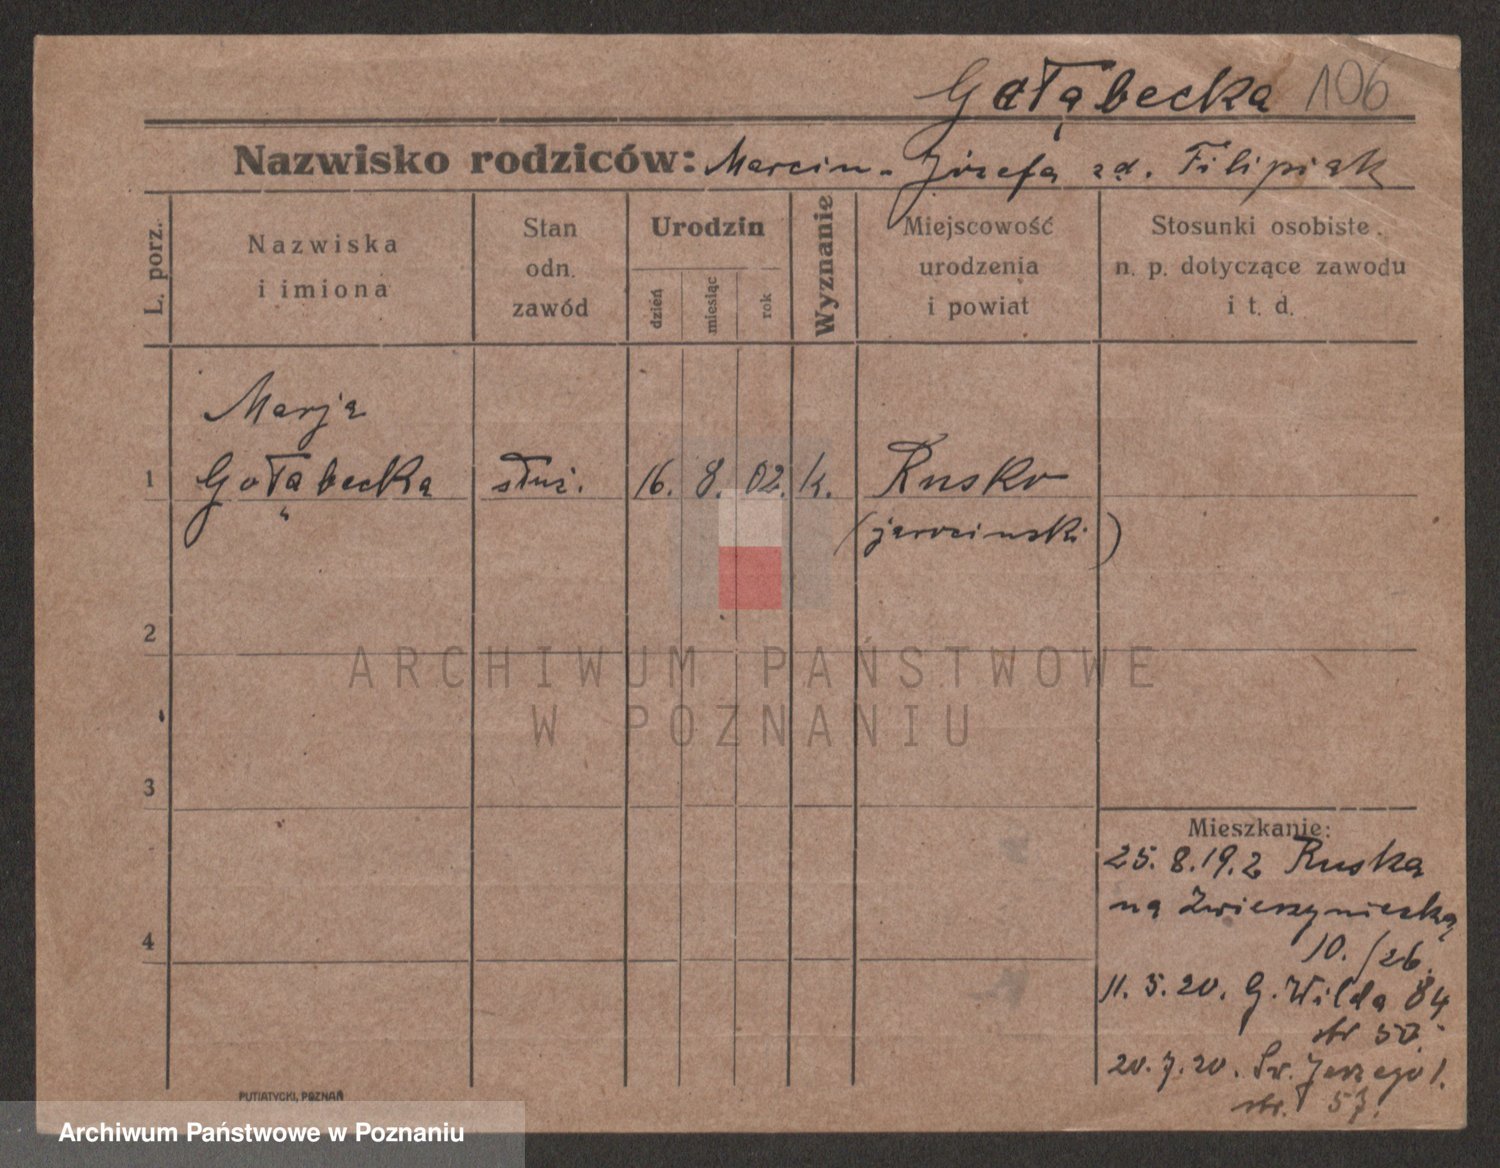 Gołąbecka 106
Nazwisko rodziców: Marcin - Józefa zd. Filipiak
L. porz.
Nazwiska
i imiona
Stan
odn.
zawód
Urodzin
dzień
miesiąc
rok
Wyznanie
Miejscowość
urodzenia
i powiat
Stosunki osobiste
n. p. dotyczące zawodu
i t. d.
Marja
1 Gołąbecka służ. 16. 8. 02. k. Rusko
(jarocinski)
2
ARCHIWUM PAŃSTWOWE
W POZNANIU
3
Mieszkanie:
25. 8. 19. z Ruska
na Zwierzyniecką
4
10. /26.
11. 5. 20. G. Wilda 84
str 50.
20. 7. 20. Św. Jerzego 1.
str. 57.
PUTIATYCKI, POZNAŃ
Archiwum Państwowe w Poznaniu